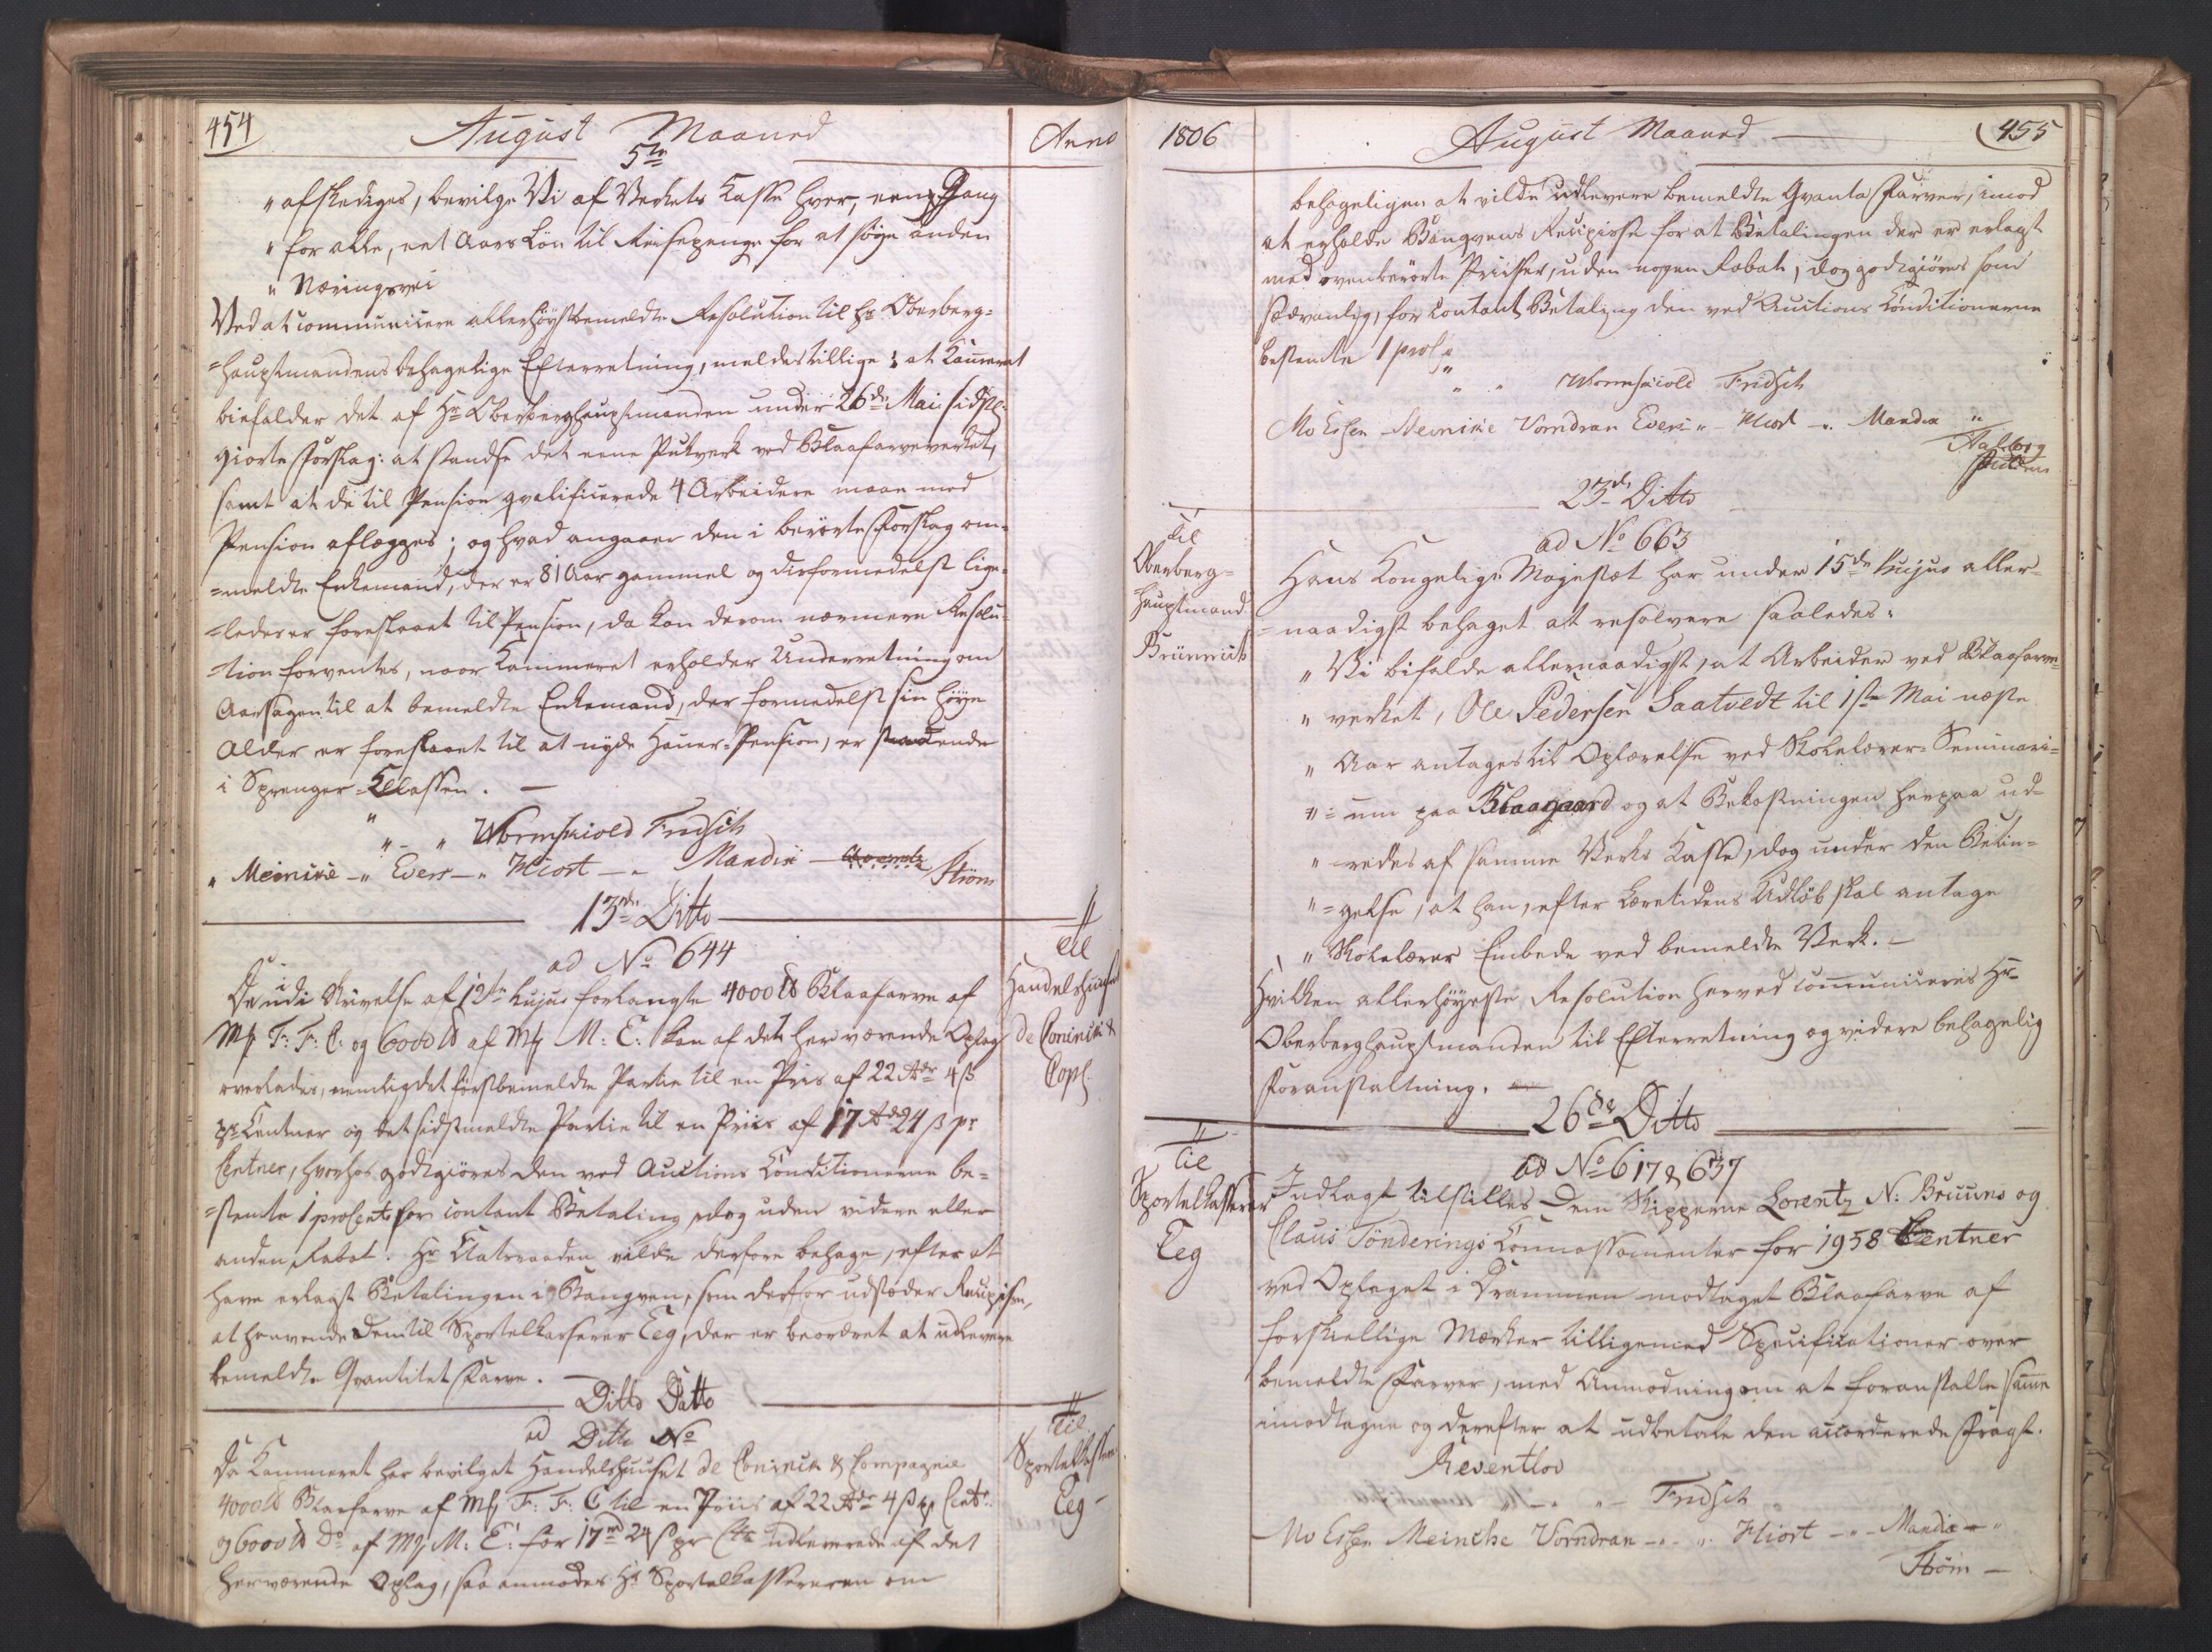 454
August Maaned
Anno
5te
" afskediges, bevilge Vi af Verkets Kasse hver, een Gang
" for alle, eet Aars Løn til Reisepenge for at søge anden
" Næringsvei
Ved at communicere allerhøystbemeldte Resolution til Hr Oberberg=
=hauptmandens behagelige Efterretning, meldes tillige: at Kammeret
biefalder det af Hr Oberberghauptmanden under 26de Maii sidstl:
giorte Forslag: at standse det eene Pukverk ved Blaafarveverket,
samt at de til Pension qvalificerede 4 Arbeidere maae med
Pension aflægges; og hvad angaaer den i berørte Forslag om=
=meldte Enkemand, der er 81 Aar gammel og derformedelst lige=
=ledes er foreslaaet til Pension, da kan derom nærmere Resolu=
=tion forventes, naar Kammeret erholder Underretning om
Aarsagen til at bemeldte Enkemand, der formedelst sin høye
Alder er foreslaaet til at nyde Hauer-Pension, er staaende
i Sprenger-Klassen. —
" - " Wormskiold Fridsch
" Meinike - " Evers - " Hiort - " Mandix - Strøm
13de Ditto
ad No 644
Til
Handelshuuset
de Coninck &
Comp.
De udi Skrivelse af 12te hujus forlangte 4000 ℔ Blaafarve af
Mk F: F: C: og 6000 ℔ af Mk M: C: kan af det herværende Oplag
overlades, nemlig det førstbemeldte Partie til en Pris af 22 Rdr 4 ß
pr Centner og det sidstmeldte Partie til en Priis af 17 Rd 24 ß pr
Centner, hvorhos godtgiøres den ved Auctions Conditionerne be=
=stemte 1 proCento for contant Betaling, dog uden videre eller
anden Rabat. Hr Etatsraaden vilde derfore behage, efter at
have erlagt Betalingen i Banqven, som derfor udstæder Recipisse,
at henvende Dem til Sportelkasserer Eeg, der er beordret at udlevere
bemeldte Qvantitet Farve. —
Ditto Ditto
ad Ditto No
Til
Sportelkasserer
Eeg
Da Kammeret har bevilget Handelshuuset de Coninck & Compagnie
4000 ℔ Blaafarve af Mk F: F: C til en Priis af 22 Rdr 4 ß pr Centr
og 6000 ℔ Do af Mk M: C: for 17 rd 24 ß pr Ctr udleverede af det
herværende Oplag, saa anmodes Hr Sportelkassereren om
1806
August Maaned
455
behageligen at vilde udlevere bemeldte Qvanta Farver, imod
at erholde Banqvens Recipisse for at Betalingen der er erlagt
med ovenberørte Priiser, uden nogen Rabat, dog godtgiøres som
sædvanlig, for contant Betaling den ved Auctions Conditionerne
bestemte 1 proC.
" " Wormskiold Fridsch
Mv Essen Meinike Vorndran Evers " - Hiort - " Mandix "
23de Ditto
ad No 663
Til
Oberberg=
=hauptmand
Brünnich
Hans Kongelige Majestæt har under 15de hujus aller=
=naadigst behaget at resolvere saaledes:
" Vi bifalde allernaadigst, at Arbeider ved Blaafarve=
" verket, Ole Pedersen Saatvedt til 1ste Mai næste
" Aar antages til Oplærelse ved Skolelærer-Seminari=
" =um paa Blaagaard og at Bekostningen herpaa ud=
" redes af samme Verks Kasse, dog under den Betin=
" =gelse, at han, efter Læretidens Udløb skal antage
" Skolelærer Embede ved bemeldte Verk. —
Hvilken allerhøyeste Resolution herved communiceres Hr
Oberberghauptmanden til Efterretning og videre behagelig
Foranstaltning. —
26de Ditto
ad No 617 & 637
Til
Sportelkasserer
Eeg
Indlagt tilstilles Dem Skipperne Lorentz N: Bruuns og
Claus Tønderings Connossementer for 1958 Centner
ved Oplaget i Drammen modtaget Blaafarve af
forskiellige Mærker tilligemed Specificationer over
bemeldte Farver, med Anmodning om at foranstalte samme
imodtagne og derefter at udbetale den accorderede Fragt.
Reventlov
" - " - Fridsch
Mv Essen Meincke Vorndran - " - " Hiort - " - Mandix - "
Strøm —